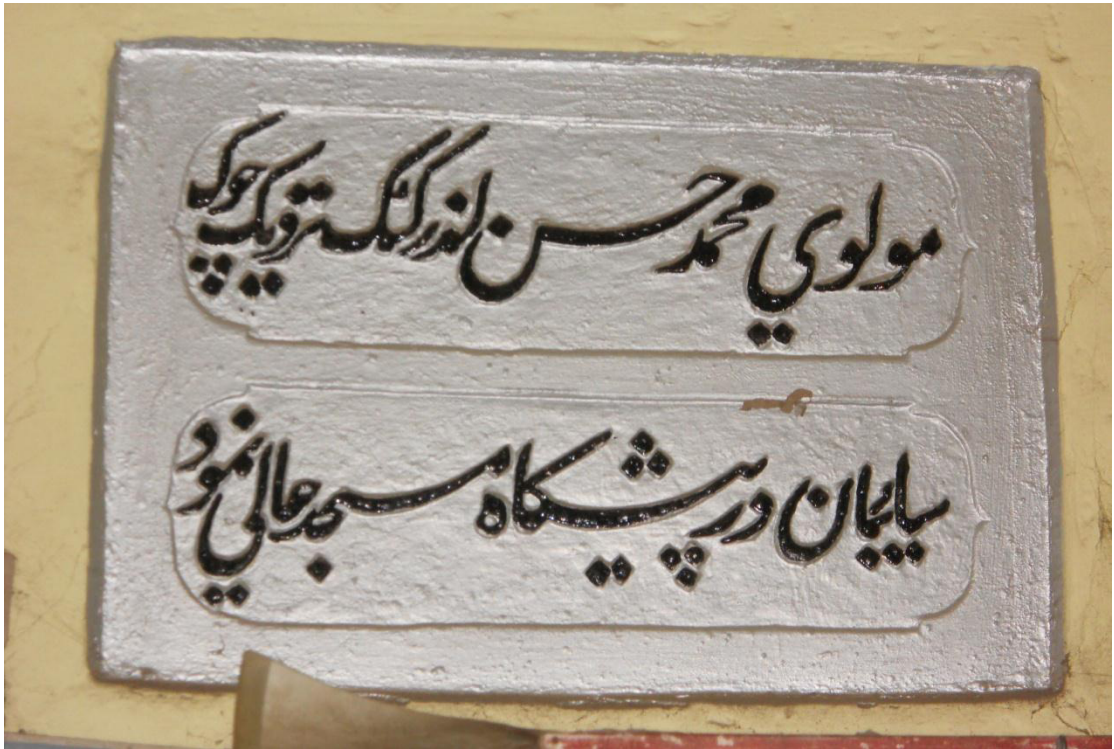 مولوي محمد حسن اندر کٹک نزدیک چوک
سایٔبان در پیشگاه مسجد عالی نمود